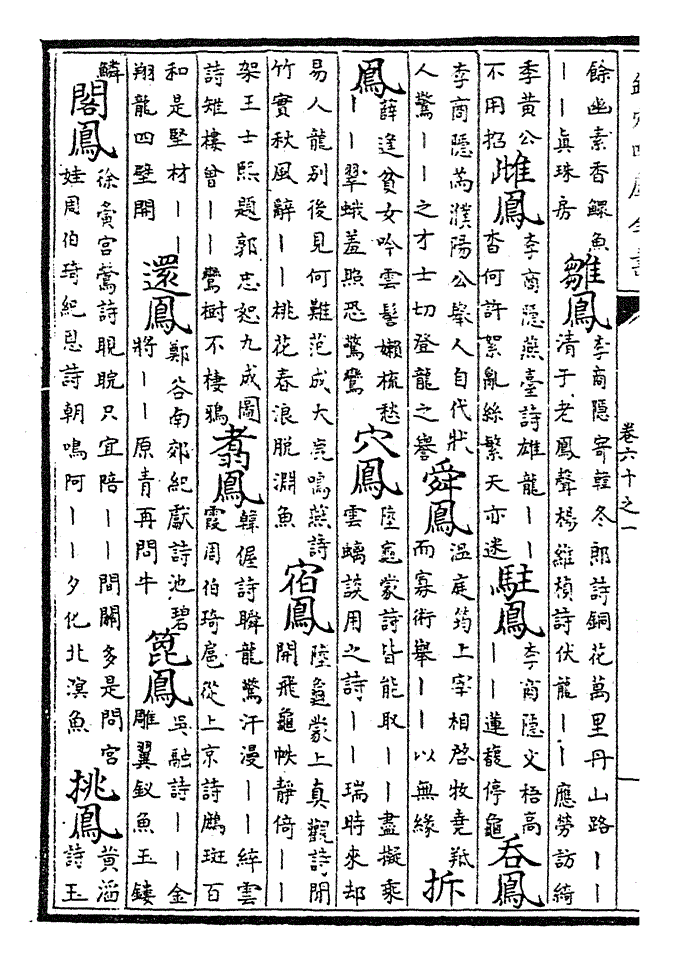 欽定四庫全書
卷六十之一
餘幽素香鰥魚
丨丨真珠房
雛鳳
李商隱寄韓冬郎詩銅花萬里丹山路丨丨
清于老鳳聲楊維楨詩伏龍丨丨應勞訪綺
季黄公
不用招
雌鳳
李商隱燕臺詩雄龍丨丨
杳何許絮亂絲繁天亦迷
駐鳳
李商隱文梧高
丨丨蓮馥停龜
吞鳳
李商隱為濮陽公舉人自代狀
人驚丨丨之才士切登龍之譽
舜鳳
溫庭筠上宰相啓牧堯羝
而寡術舉丨丨以無緣
拆
鳳
薛逢貧女吟雲髻嬾梳愁
丨丨翠蛾羞照恐驚鸞
穴鳳
陸龜蒙詩皆能取丨丨盡擬乘
雲螭談用之詩丨丨瑞時來却
易人龍别後見何難范成大鳴燕詩
竹實秋風辭丨丨桃花春浪脱淵魚
宿鳳
陸龜蒙上真觀詩閉
開飛龜帙静倚丨丨
架王士熙題郭忠恕九成圖
詩雉棲曾丨丨鸞樹不棲鴉
翥鳳
韓偓詩瞬龍驚汗漫丨丨綷雲
霞周伯琦扈從上京詩鷓斑百
和是堅材丨丨
翔龍四壁開
還鳳
鄭谷南郊紀獻詩池碧
將丨丨原青再問牛
箆鳳
吳融詩丨丨金
雕翼釵魚玉鏤
鱗
閣鳳
徐夤宫鶯詩睍睆只宜陪丨丨間關多是問宫
娃周伯琦紀恩詩朝鳴阿丨丨夕化北溟魚
挑鳳
黄滔
詩玉